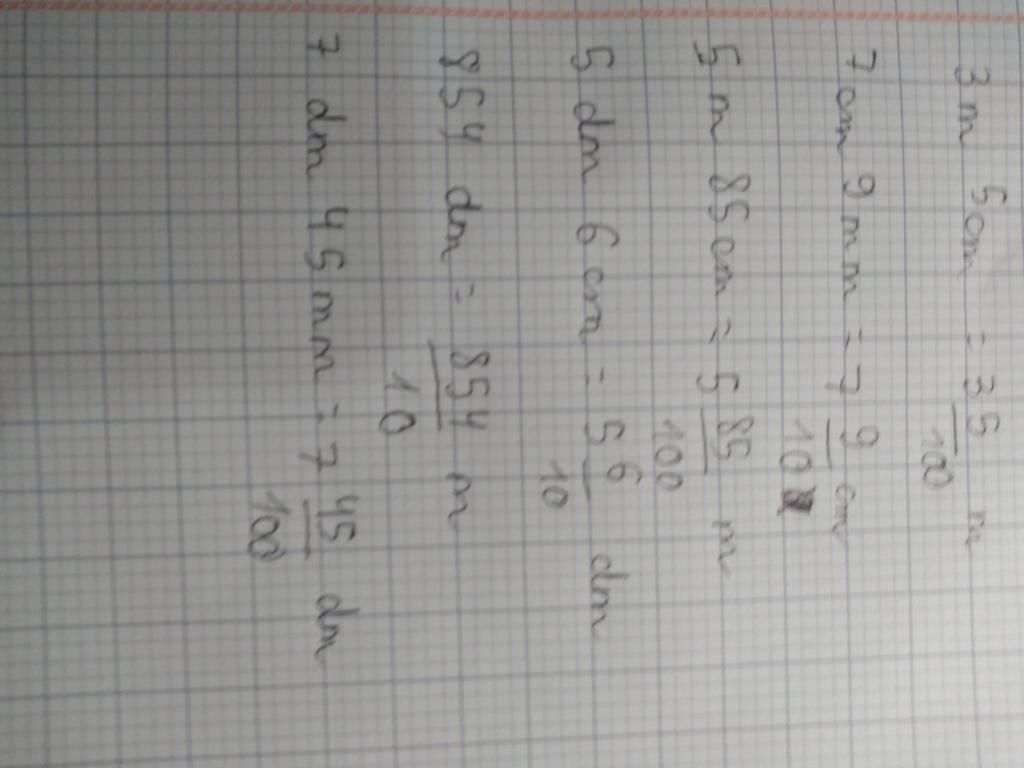 3 m 5 cm = 3 5/100 m
7 cm 9 mm = 7 9/10 cm
5 m 85 cm = 5 85/100 m
5 dm 6 cm = 5 6/10 dm
854 dm = 854/10 m
7 dm 45 mm = 7 45/100 dm